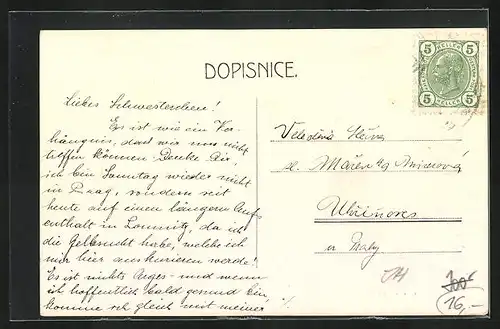 DOPISNICE.
5 5
HELLER
5 5
Liebes Schwesterchen!
Es ist wie ein Ver-
hängnis, dass wir uns nicht
treffen können. Denke Dir,
ich bin Sonntag wieder nicht
in Prag, sondern seit
heute auf einen längeren Aufent-
enthalt in Lomnitz, da ich
die Gelbsucht habe, welche ich
mir hier auskurieren werde!
Es ist nichts Arges - und wenn
ich hoffentlich bald gesund bin,
komme ich gleich mit meiner
Velectěná Slečna
sl. Mařenka
Uhříněves
u Prahy
14
300-
16,-